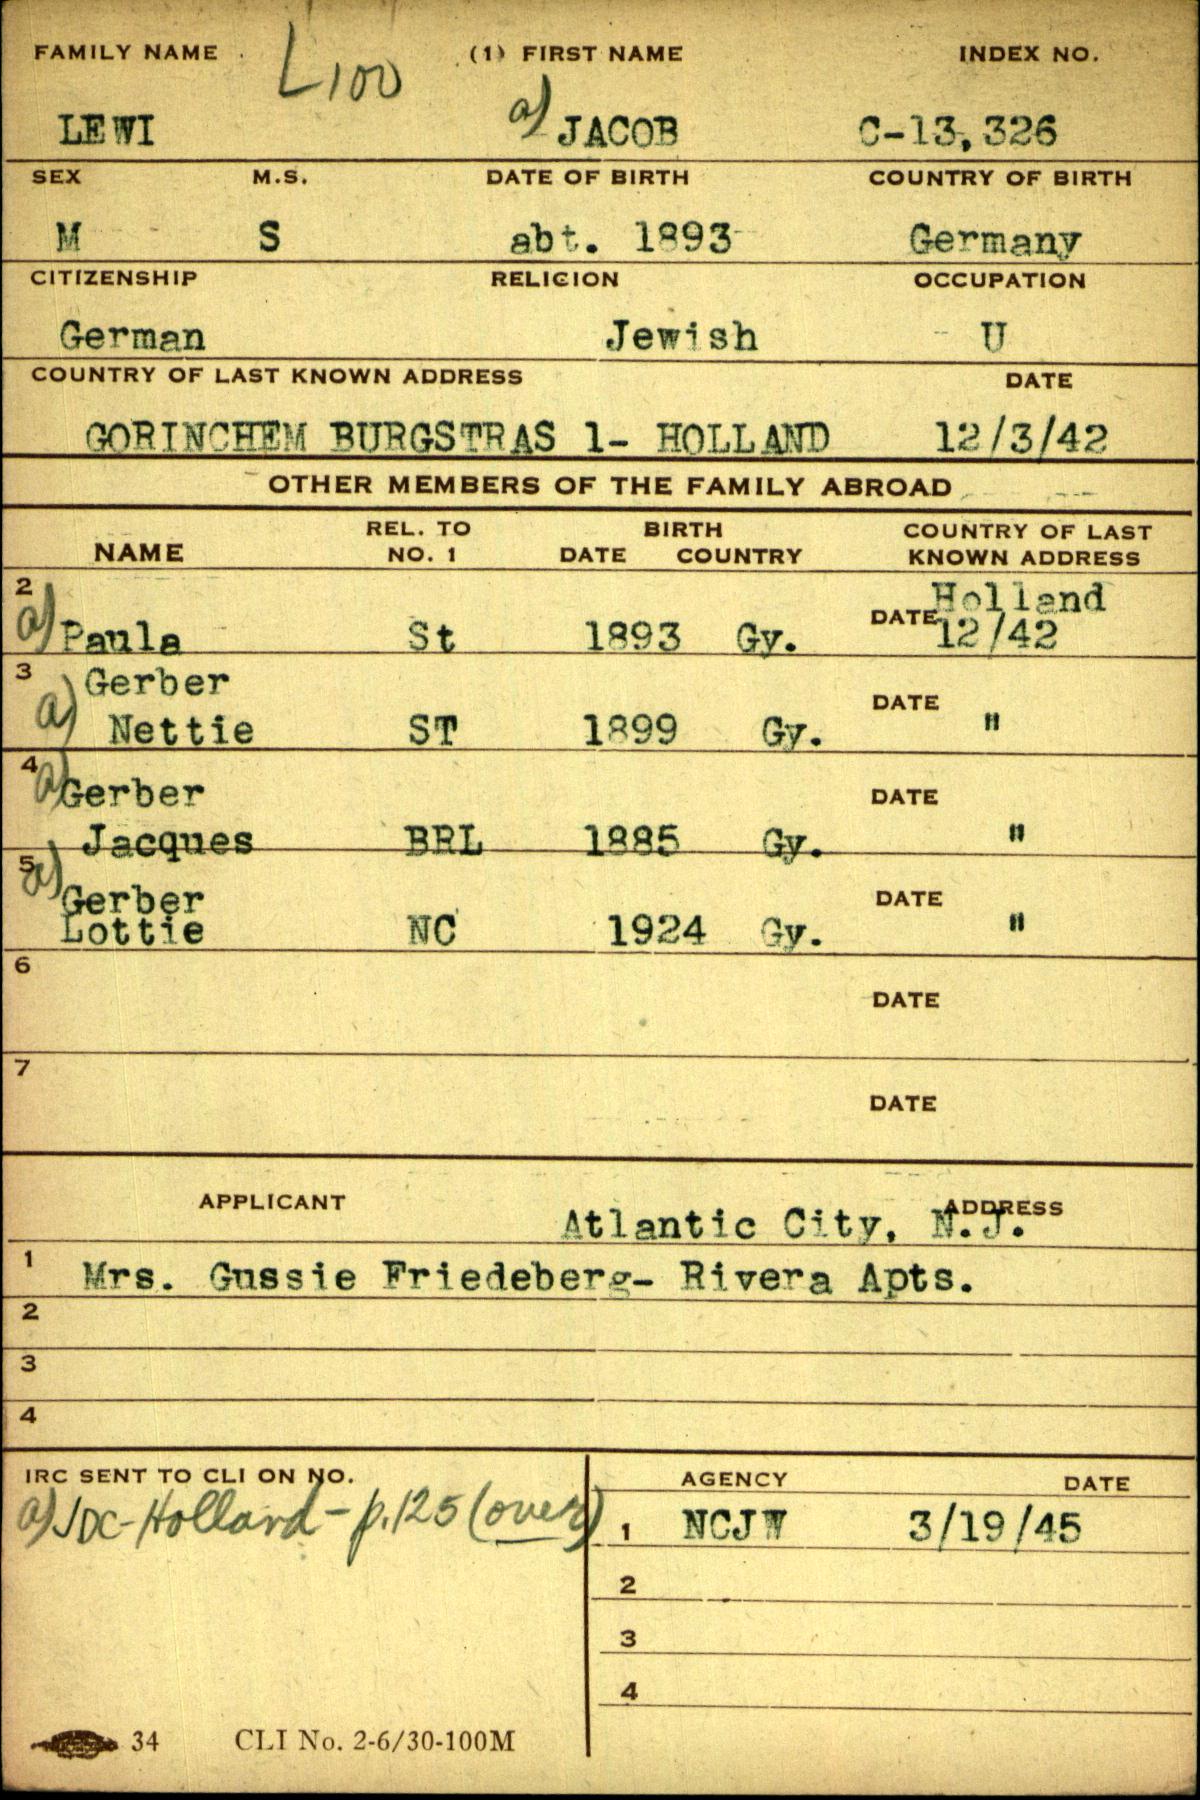 FAMILY NAME L100 (1) FIRST NAME INDEX NO.
LEWI a) JACOB C-13,326
SEX M.S. DATE OF BIRTH COUNTRY OF BIRTH
M S abt. 1893 Germany
CITIZENSHIP RELIGION OCCUPATION
German Jewish U
COUNTRY OF LAST KNOWN ADDRESS DATE
GORINCHEM BURGSTRAS 1- HOLLAND 12/3/42
OTHER MEMBERS OF THE FAMILY ABROAD
NAME REL. TO NO. 1 BIRTH DATE COUNTRY COUNTRY OF LAST KNOWN ADDRESS
2 Holland
a) Paula St 1893 Gy. DATE 12/42
3 Gerber
a) Nettie ST 1899 Gy. DATE "
4 a) Gerber DATE
Jacques BRL 1885 Gy. "
5 a) Gerber DATE
Lottie NC 1924 Gy. "
6 DATE
7 DATE
APPLICANT ADDRESS
Atlantic City, N.J.
1 Mrs. Gussie Friedeberg- Rivera Apts.
2
3
4
IRC SENT TO CLI ON NO. AGENCY DATE
a) JDC-Holland - p.125 (over) 1 NCJW 3/19/45
2
3
4
34 CLI No. 2-6/30-100M